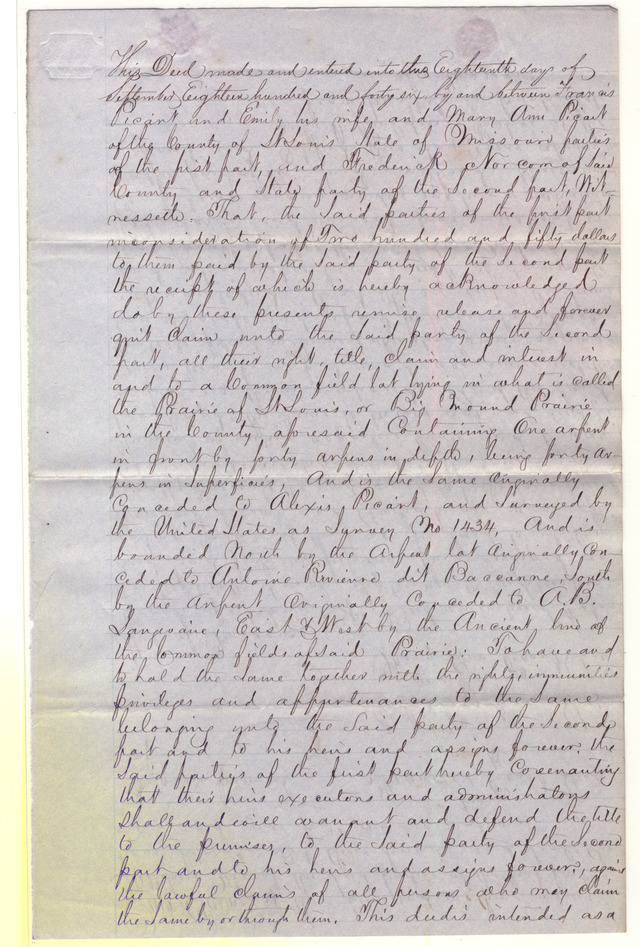 This Deed made and entered into this Eighteenth day of
September Eighteen hundred and forty six, by and between Francis
Picart and Emily his wife, and Mary Ann Picart
of the County of St Louis State of Missouri parties
of the first part, and Frederick Norcom of said
County and State party of the Second part, Wit-
nesseth. That, the Said parties of the first part
inconsideration of Two hundred and fifty dollars
to them paid by the Said party of the Second part
the receipt of which is hereby acknowledged
do by these presents remise release and forever
quit claim unto the Said party of the Second
part, all their right, title, claim and interest in
and to a Common field lot lying in what is called
the Prairie of St Louis, or Big Mound Prairie
in the County aforesaid Containing One arpent
in front by forty arpens in depth, being forty Ar-
pens in Superficies, And is the Same Originally
Conceded to Alexis Picart, and Surveyed by
the United States as Survey No 1434, And is
bounded North by the Arpent lot Originally Con-
ceded to Antoine dit Baccanne, South
by the Arpent Originally Conceded to A. B.
East & West by the Ancient line of
the Common fields of said Prairie: To have and
to hold the Same together with the rights, immunities
privileges and appurtenances to the Same
belonging unto the Said party of the Second
part and to his heirs and assigns forever. the
Said parties of the first part hereby Covenanting
that their heirs executors and administrators
Shall and will warrant and defend the title
to the premises, to the Said party of the Second
part and to his heirs and assigns forever, against
the lawful claims of all persons who may claim
the Same by or through them. This deed is intended as a